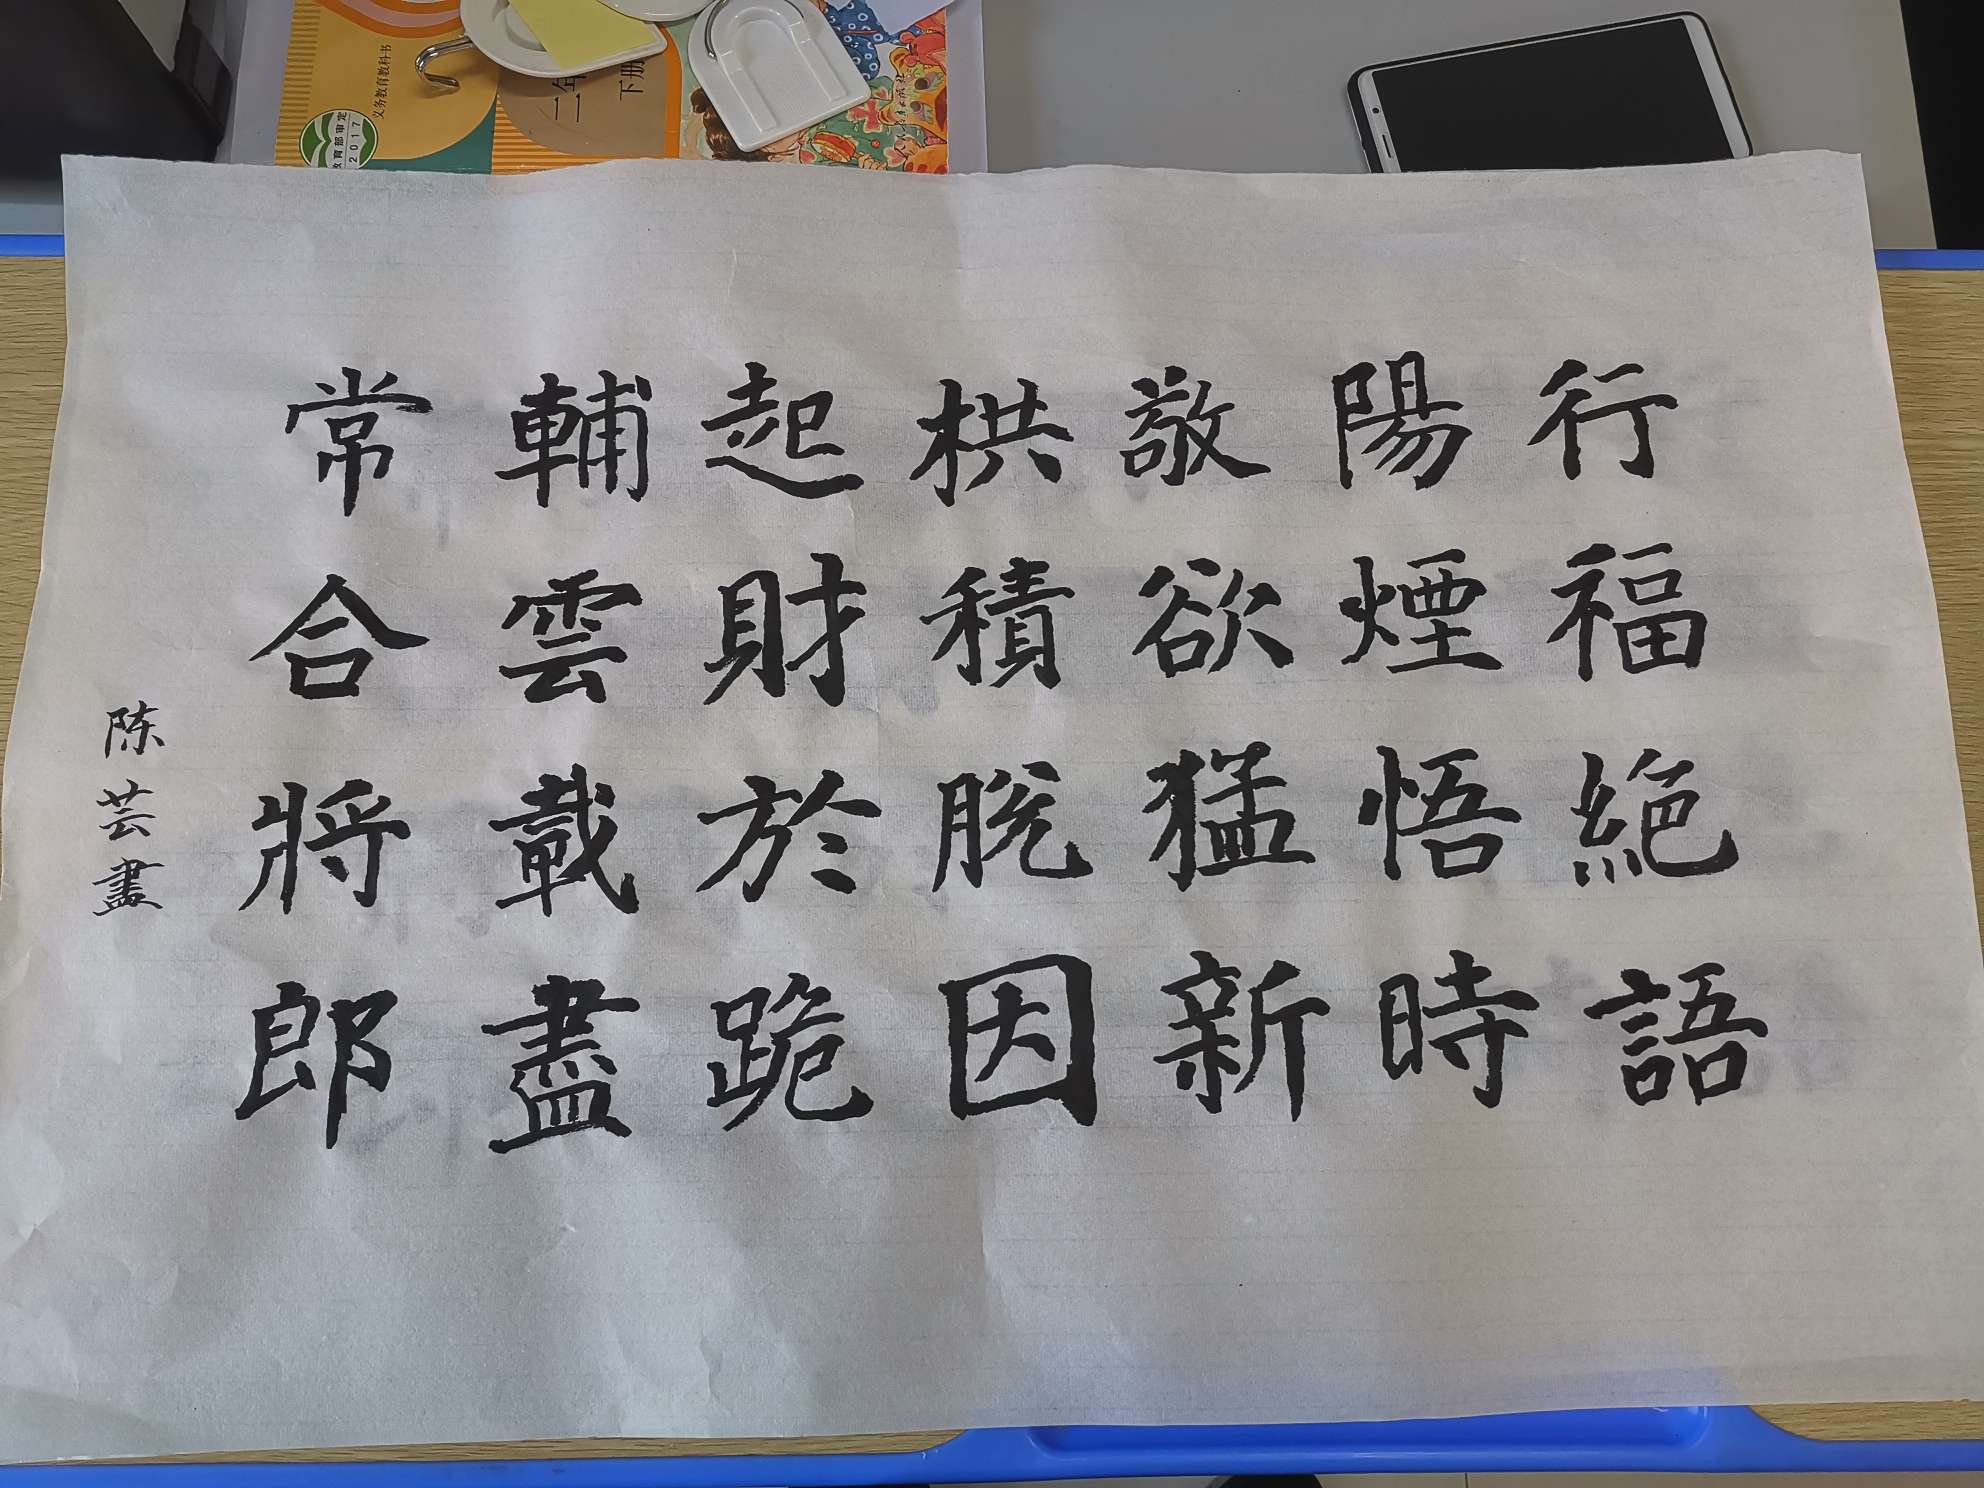 行福絕語
陽煙悟時
敬欲猛新
栱積脫因
起財於跪
輔雲載盡
常合將郎
陈芸書
义务教育教科书
教育部审定
2017
二年
下册